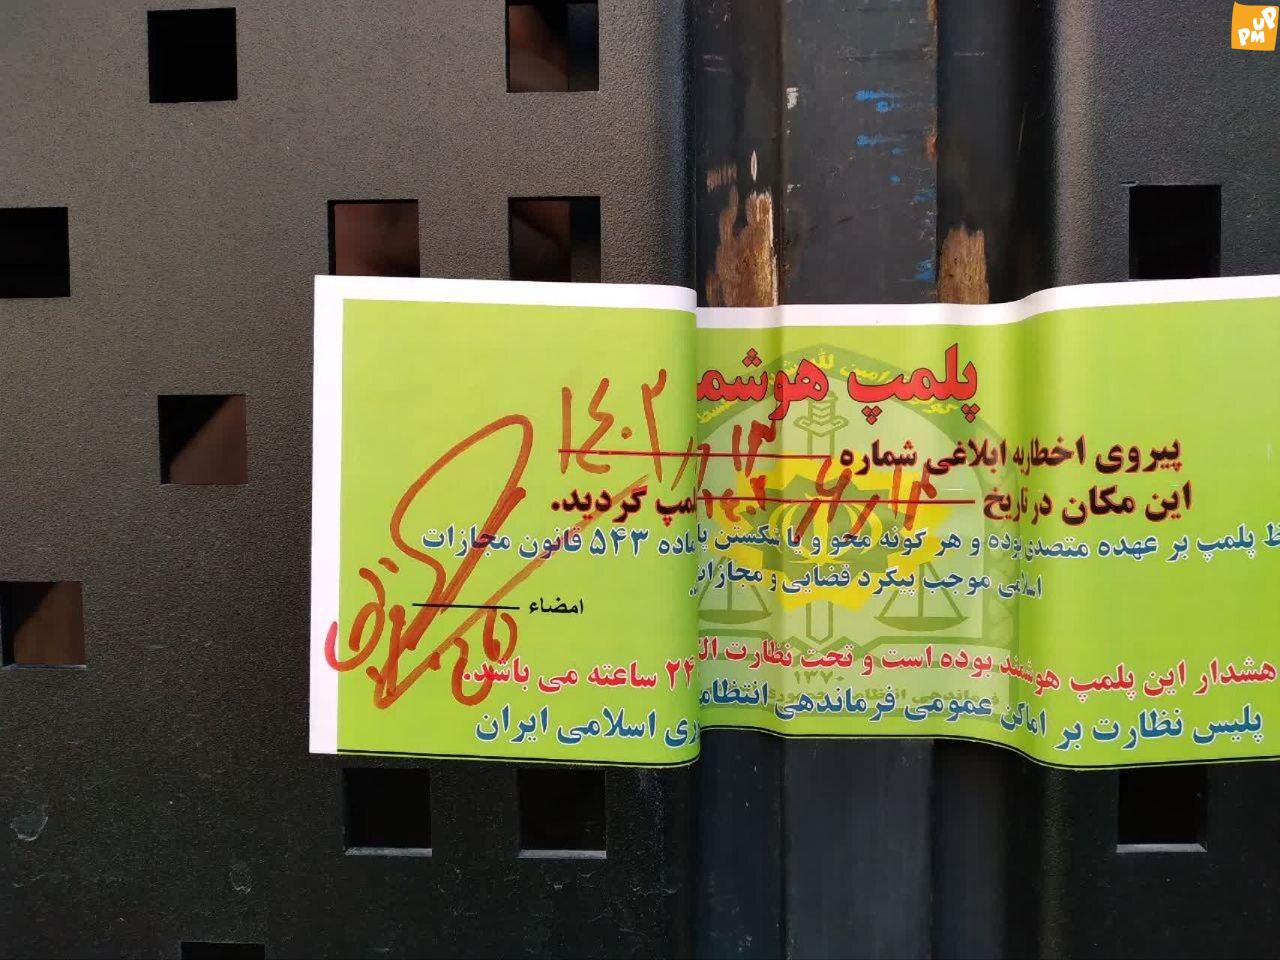 پلمپ هوشمـ
پیروی اخطاریه ابلاغی شماره
این مکان در تاریخ ـلمپ گردید.
ظ پلمپ بر عهده متصدی بوده و هر گونه محو و یا شکستن پلـ ماده ۵۴۳ قانون مجازات
اسلامی موجب پیگرد قضایی و مجازات
امضاء
هشدار این پلمپ هوشمند بوده است و تحت نظارت الکـ ۲۴ ساعته می باشد.
پلیس نظارت بر اماکن عمومی فرماندهی انتظامـ ـری اسلامی ایران
۱۳۷۰
UP
PM